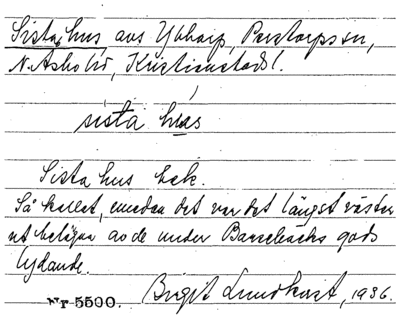 Sista hus, avs Ybbarp, Perstorps sn,
N. Åsbo hd, Kristianstads l.
sista hus
Sista hus bek.
Så kallat, emedan det var det längst väster
ut belägna av de under Barsebäcks gods
lydande.
Nr 5500. Birgit Lundkvist, 1936.